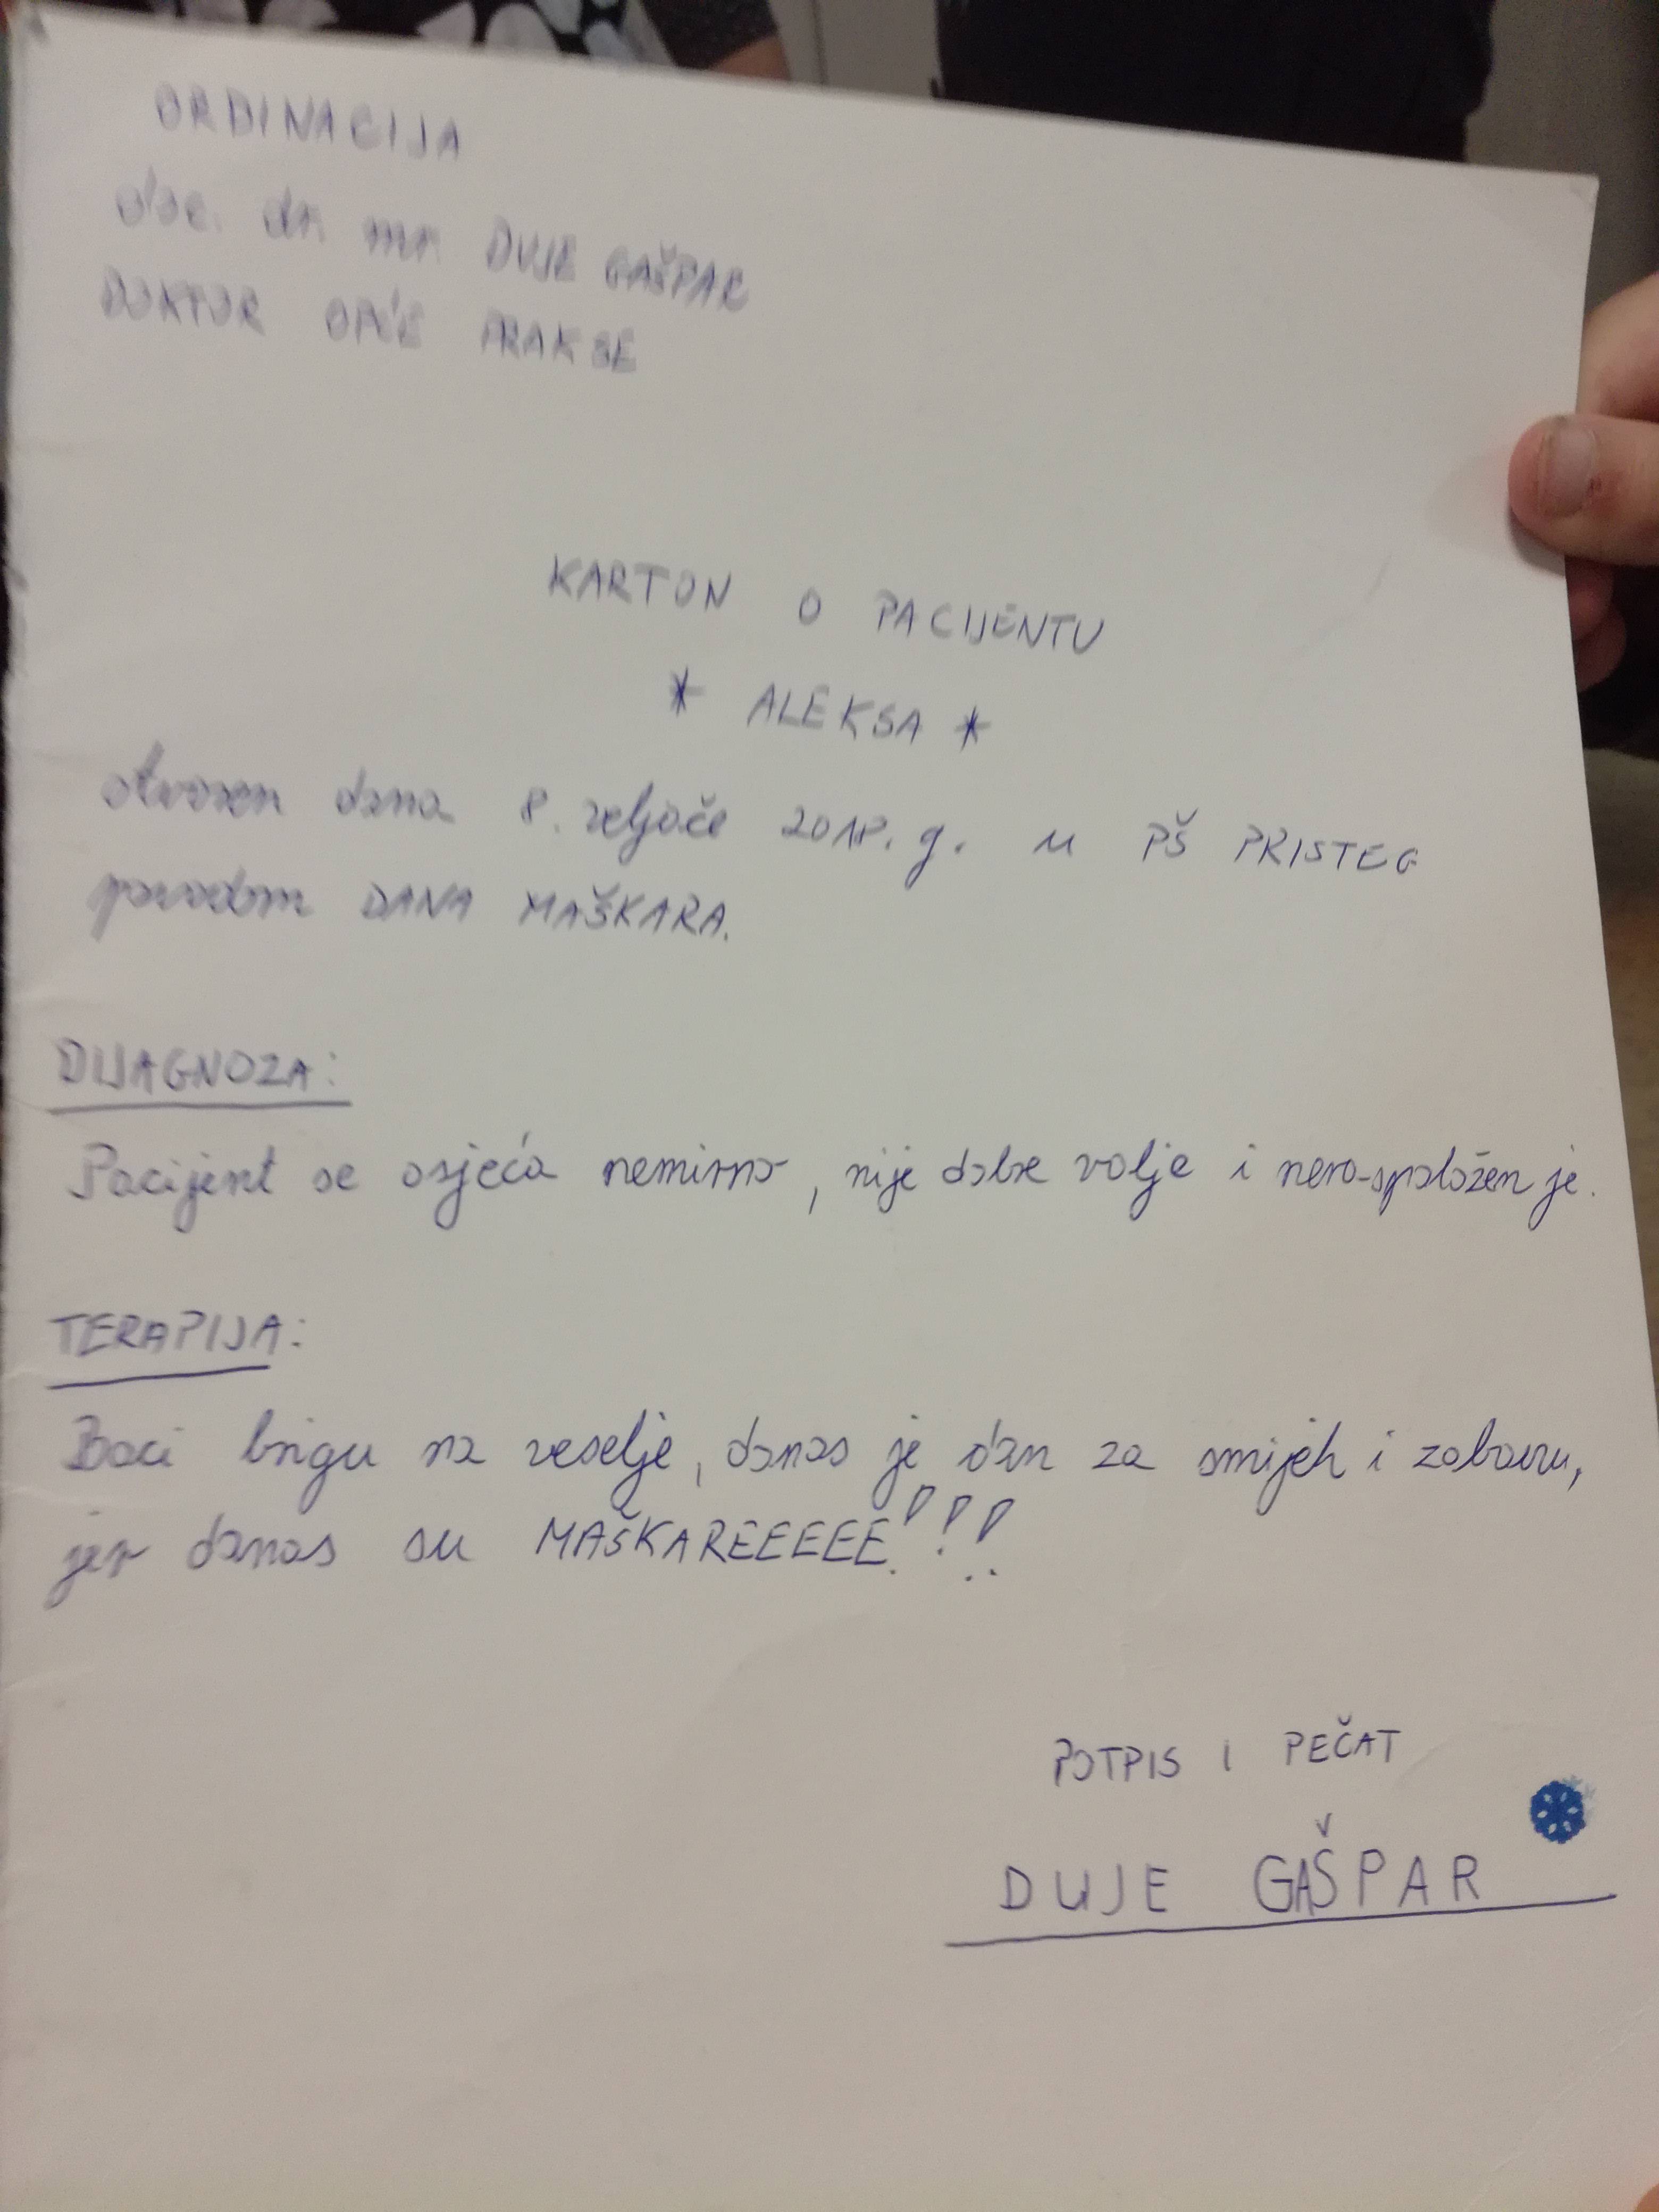 ORDINACIJA
doc. dr. mr. DUJE GAŠPAR
DOKTOR OPĆE PRAKSE
KARTON O PACIJENTU
* ALEKSA *
otvoren dana 8. veljače 2018. g. u PŠ PRISTEG
povodom DANA MAŠKARA.
DIJAGNOZA:
Pacijent se osjeća nemirno, nije dobre volje i nero-spoložen je.
TERAPIJA:
Baci brigu na veselje, danas je dan za smijeh i zabavu,
jer danas su MAŠKAREEEEE!!!
POTPIS I PEČAT
DUJE GAŠPAR